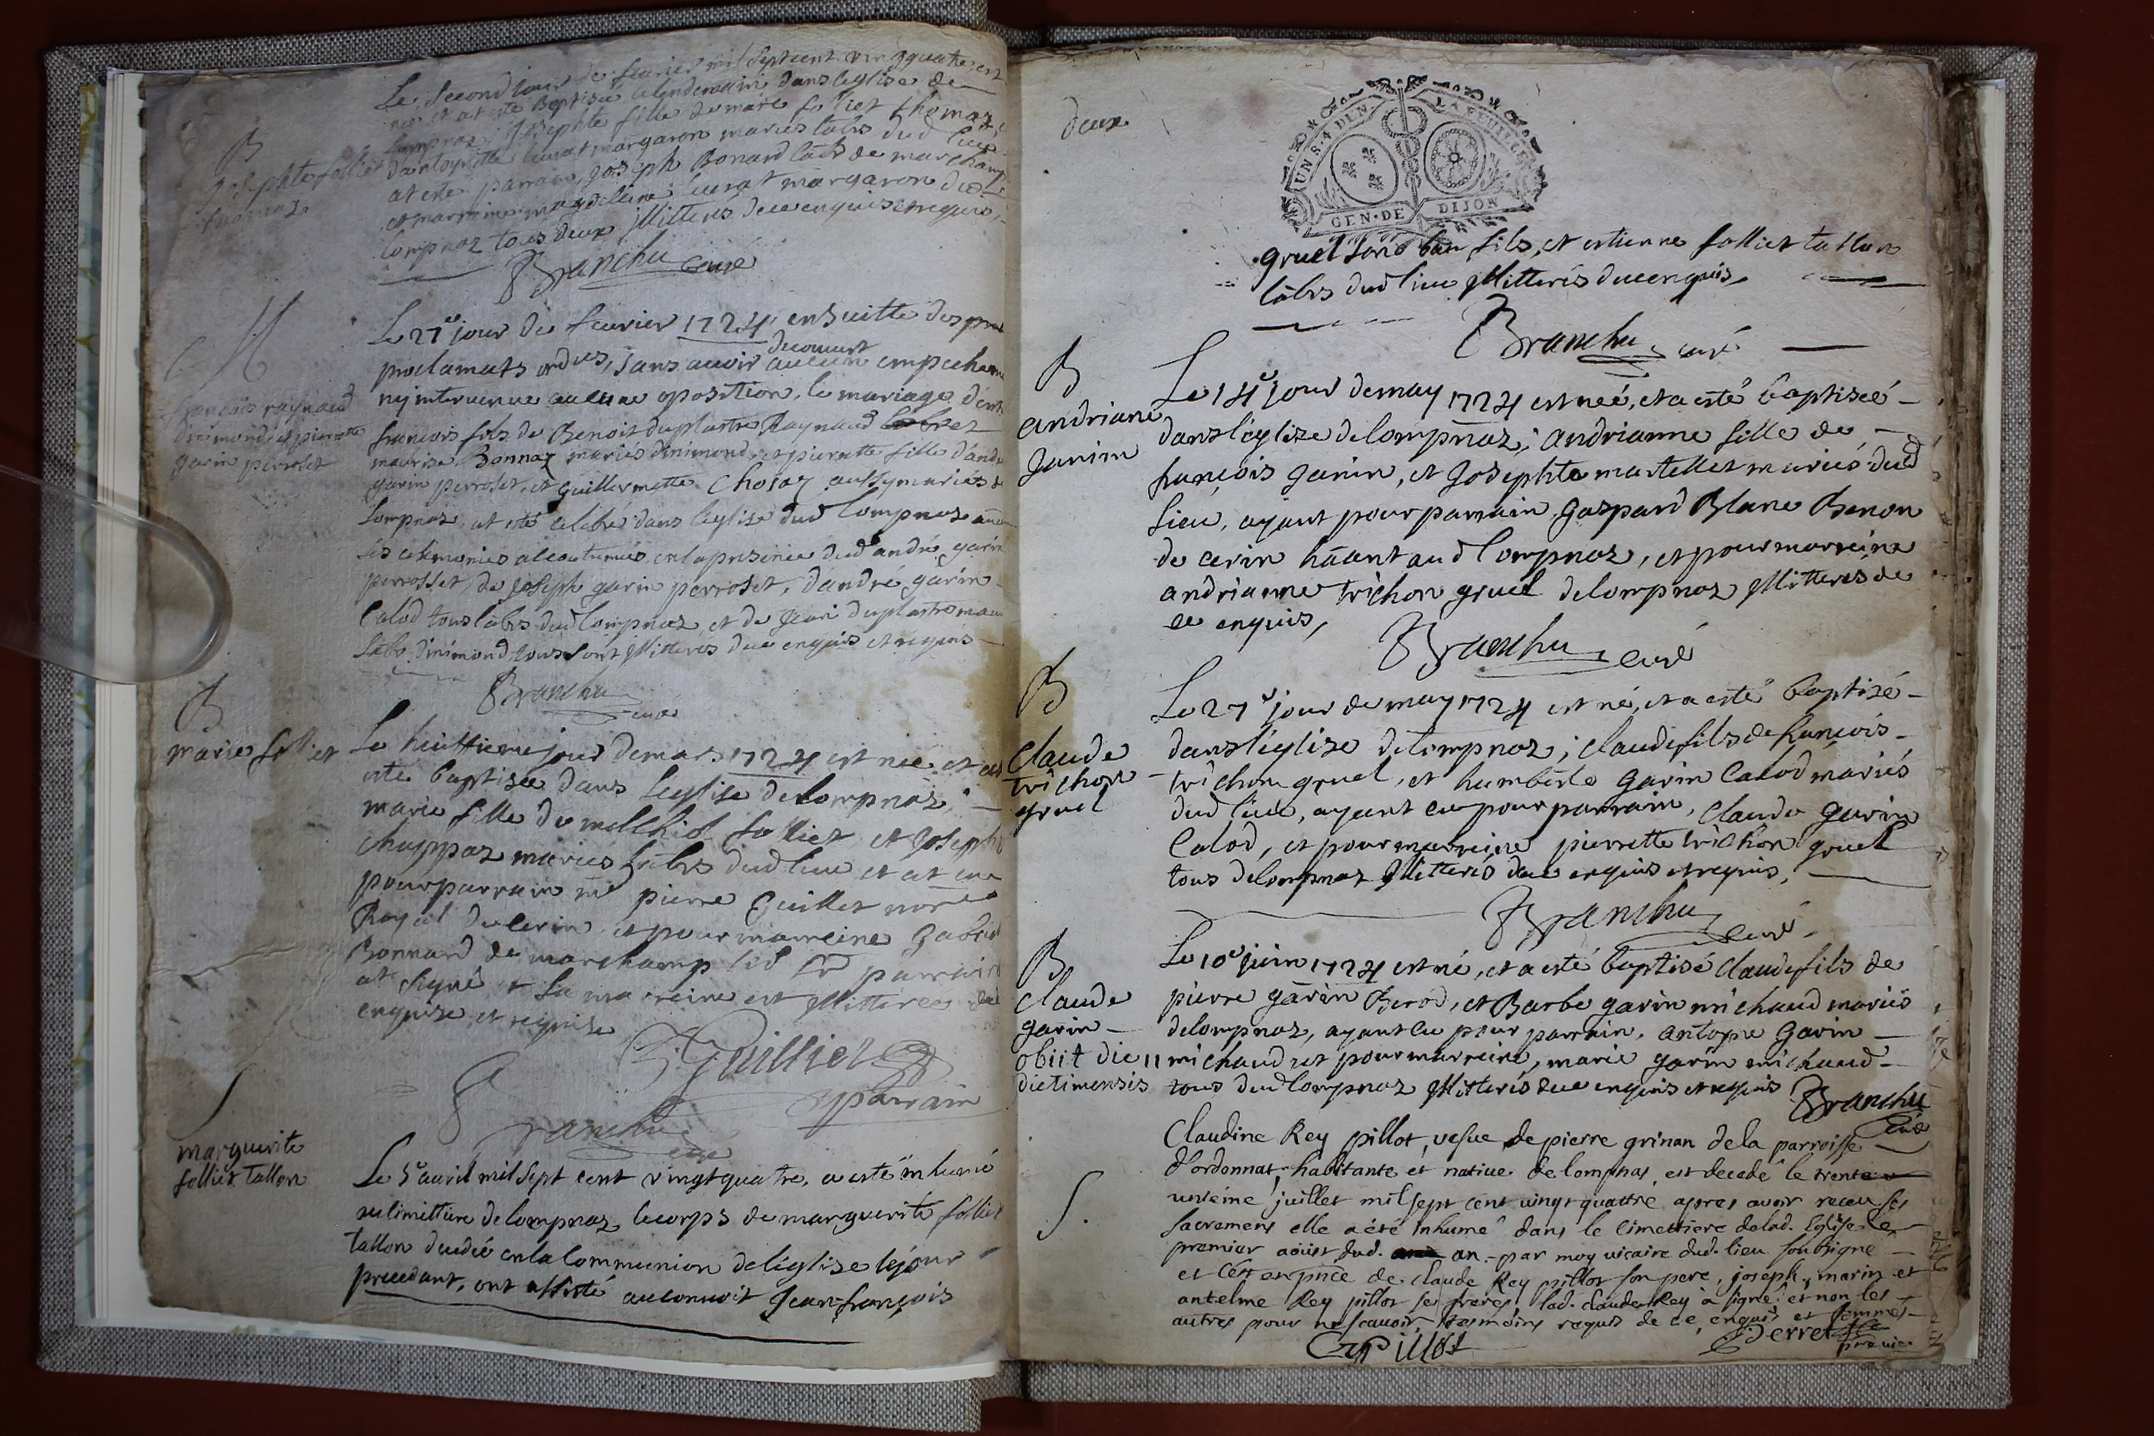 Le second jour de feurier mil sept cent vingt quatre, est
née et at esté Baptisée le lendemain dans leglise de
Lompnaz; Josephte fille de marc folliet thomaz
B
Josephte folliet
thomaz
at esté parrain, Joseph Bonard labr de marchamp
et marraine magdelaine luurat margaron dud
Lompnaz tous deux Illitterés de ce enquis et requis,
Branchu curé
M
françois raynaud
dinimond, et pierrette
garin perroset
Le 27e jour de feurier 1724, ensuitte des
proclamats ordres, sans auoir decouuert aucun empecheme
ny interuenue aucune oposition, le mariage d'entre
françois fils de Benoit duplastre Raynaud
maurise Bonnaz mariés dinimond, et pierrette fille d'andré
garin perroset, et Guillermette Chosaz aussy mariés de
Lompnaz, at esté celebré dans leglise dud Lompnaz auec
les ceremonies accoutumées en la presence dud andré garin
perrosset, de Joseph garin perroset, d'andré garin
Calod tous labrs dud Lompnaz et de Jean duplastre
labr dinimond tous sont Illitterés de ce enquis et requis
Branchu
curé
B
marie folliet
Le huittieme jour de mars 1724 est née et at
esté baptisée dans leglise de Lompnaz;
marie fille de melchiol folliet et Josephte
chappaz mariés labrs dud lieu et at eu
pour parrain me pierre Guillet nore
Royal de cerin, et pour marreine
Bonnard de marchamp led Sr parrain
at signé et la marreine est Illitterée de ce
enquise et requise
Guillier
parrain
Branchu
curé
S
marguerite
folliet tallon
Le 5e auril mil sept cent vingt quatre, a esté inhumé
au cimettiere de Lompnaz le corps de marguerite folliet
tallon decedée en la Communion de leglise le jour
precedant, ont assisté au conuoit Jean françois
deux
UN S. 4 DEN. LA FEUILLE
GEN. DE DIJON
gruel son beau fils, et estienne folliet tallon
labrs dud lieu Illitterés de ce enquis,
Branchu curé
B
andriane
Janin
Le 14e jour de may 1724 est née, et a esté baptisée
dans l'église de Lompnaz; andrianne fille de
françois Janin, et Josephte martellet mariés dud
lieu, ayant pour parrain gaspard Blanc Benon
de cerin häant aud Lompnaz, et pour marreine
andrianne trichon gruel de Lompnaz Illitterés de
ce enquis,
Branchu curé
B
Claude
trichon
gruel
Le 27e jour de may 1724 est né, et a esté baptisé
dans l'église de Lompnaz; Claude fils de françois
trichon gruel, et humberte garin Calod mariés
dud lieu, ayant eu pour parrain, Claude garin
Calod, et pour marreine pierrette trichon gruel
tous de Lompnaz Illitterés de ce enquis et requis,
Branchu curé
B
Claude
garin
obiit die 11
dicti mensis
Le 10e juin 1724 est né, et a esté baptisé Claude fils de
pierre garin Berod, et Barbe garin michaud mariés
de Lompnaz, ayant eu pour parrain, antoyne garin
michaud, et pour marreine, marie garin michaud
tous dud Lompnaz Illitterés de ce enquis et requis Branchu
Curé
S.
Claudine Rey pillot, vefue de pierre grinan de la parroisse
d'ordonnat, habitante et natiue de lompnas, est decedé le trente
unieme juillet mil sept cent vingt quattre apres avoir receu ses
sacremens elle a été inhumé dans le cimettiere de lad. Eglise le
premier aoust dud. an par moy vicaire dud. lieu soubsigné
et c'est en pnce de Claude Rey pillot son pere, joseph, marin et
antelme Rey pillot ses freres, lad. claude Rey a signé et non les
autres pour ne scavoir tesmoins requis de ce enquis et sommes
CRPillot
Derret